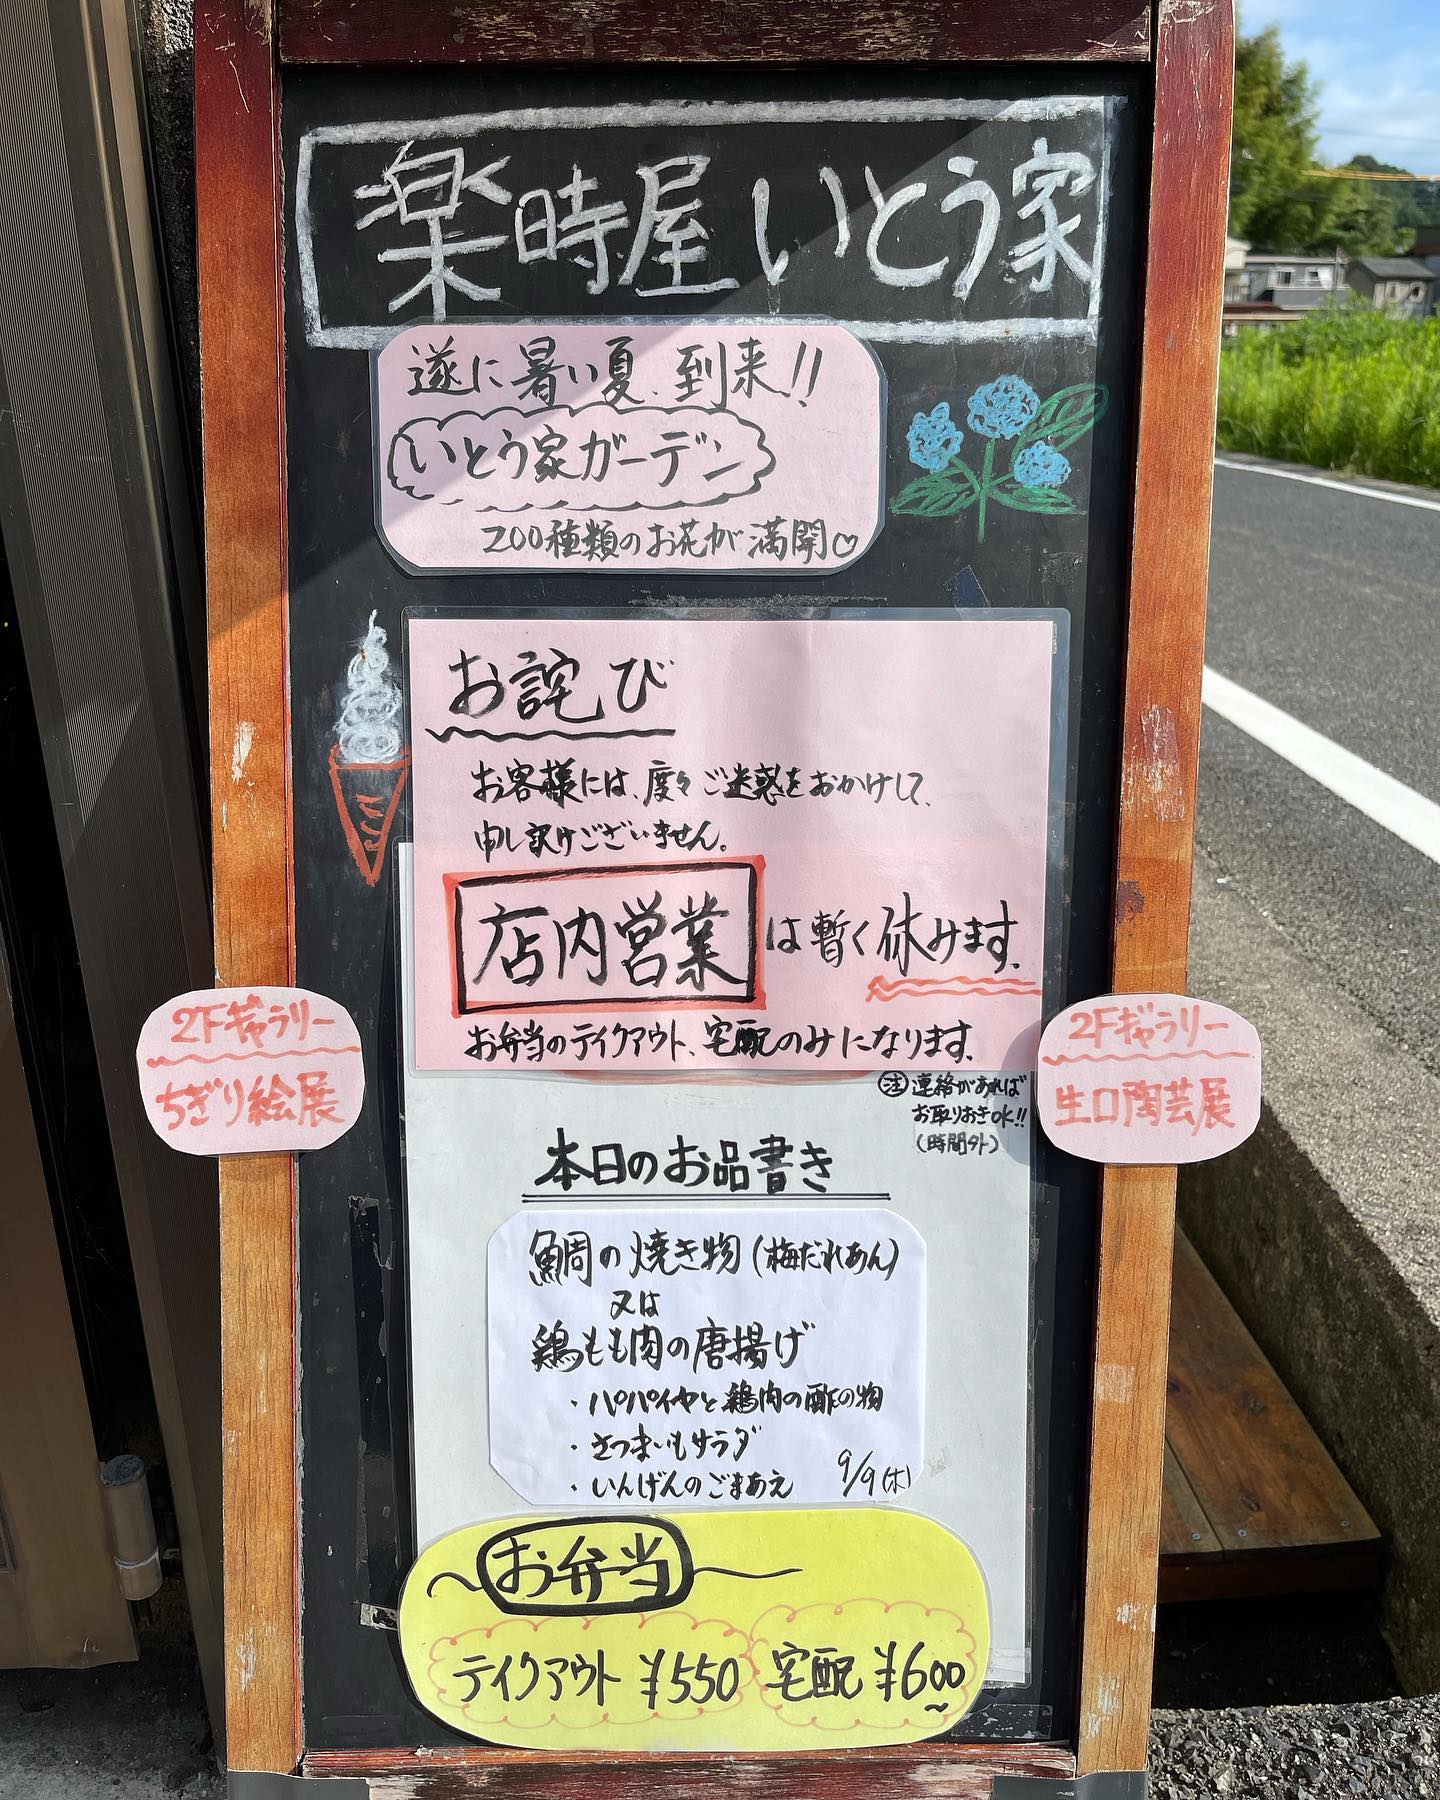 楽時屋 いとう家
遂に暑い夏、到来!!
いとう家ガーデン
200種類のお花が満開♡
お詫び
お客様には、度々ご迷惑をおかけして、
申し訳けございません。
店内営業は暫く休みます。
お弁当のテイクアウト、宅配のみになります。
注 連絡があれば
お取りおきOK!!
(時間外)
2Fギャラリー
ちぎり絵展
2Fギャラリー
生口陶芸展
本日のお品書き
鯛の焼き物(梅だれあん)
又は
鶏もも肉の唐揚げ
・パパイヤと鶏肉の酢の物
・さつまいもサラダ
・いんげんのごまあえ
9/9(木)
お弁当
テイクアウト ¥550 宅配 ¥600~